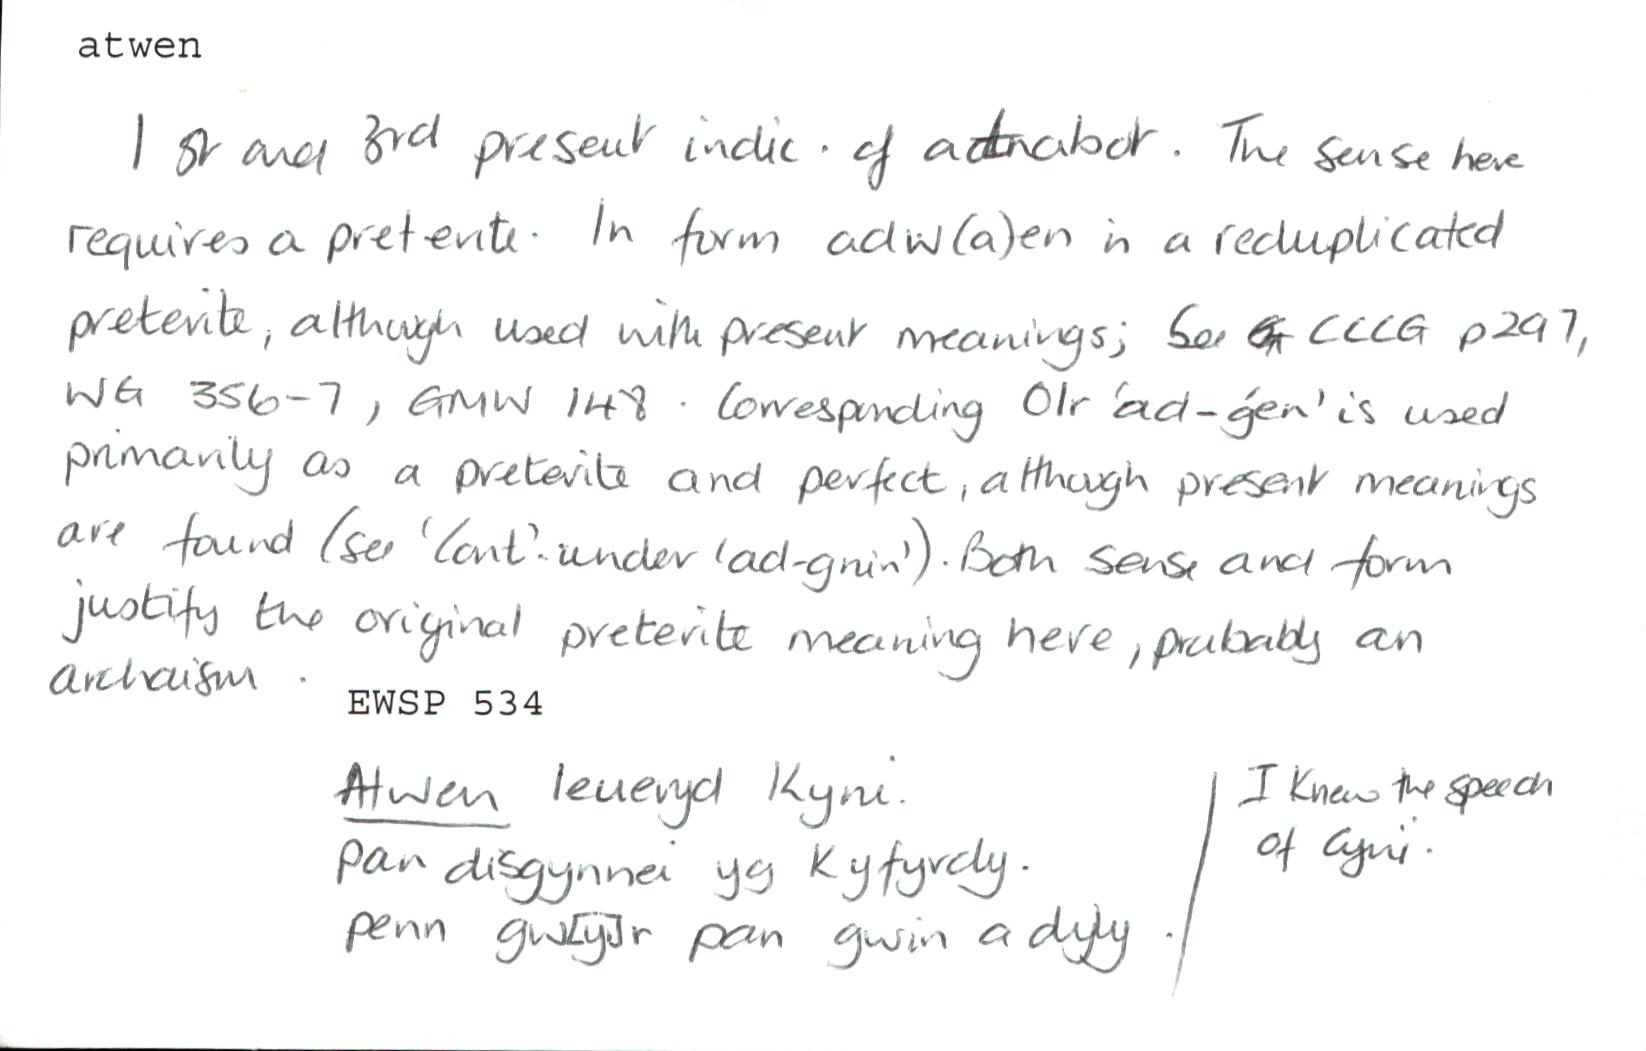 atwen
1 st and 3rd present indic. of adnabot. The sense here
requires a preterite. In form adw(a)en is a reduplicated
preterite, although used with present meanings; See CCCG p297,
WG 356-7, GMW 148. Corresponding OIr 'ad-gén' is used
primarily as a preterite and perfect, although present meanings
are found (see 'Cont'. under 'ad-gnin'). Both sense and form
justify the original preterite meaning here, probably an
archaism.
EWSP 534
Atwen leueryd Kyni.
pan disgynnei yg Kyfyrdy.
penn gw[y]r pan gwin a dyly.
I knew the speech
of Cyni.